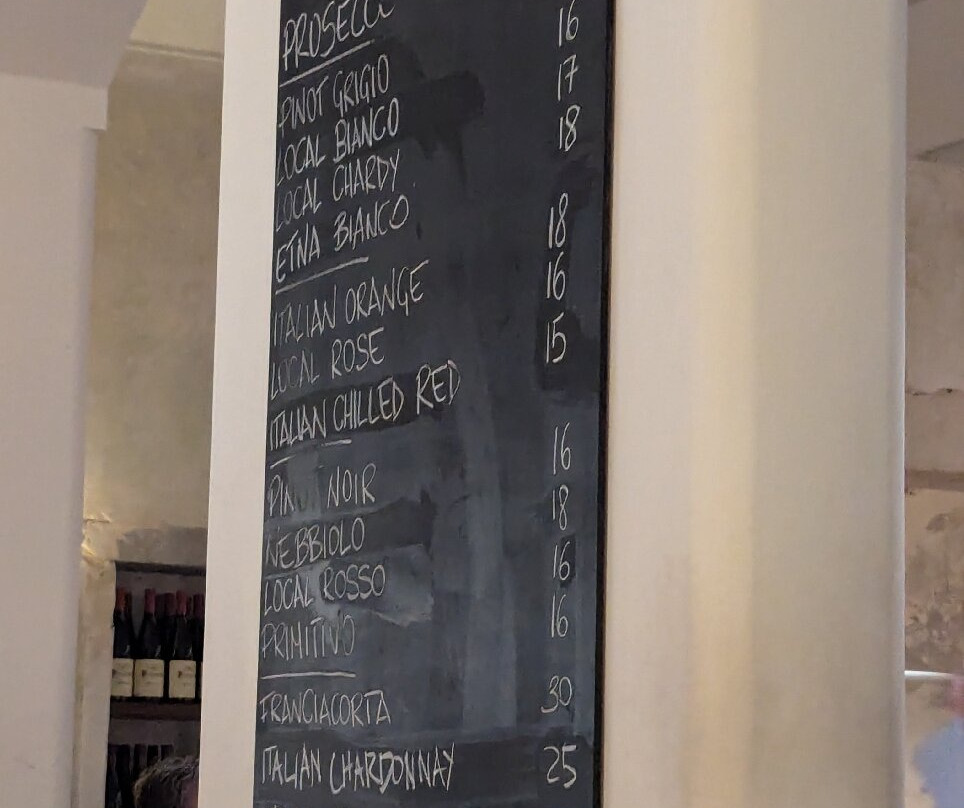 PROSECCO
PINOT GRIGIO
LOCAL BIANCO 16
LOCAL CHARDY 17
ETNA BIANCO 18
ITALIAN ORANGE 18
LOCAL ROSE 16
ITALIAN CHILLED RED 15
PINOT NOIR 16
NEBBIOLO 18
LOCAL ROSSO 16
PRIMITIVO 16
FRANCIACORTA 30
ITALIAN CHARDONNAY 25